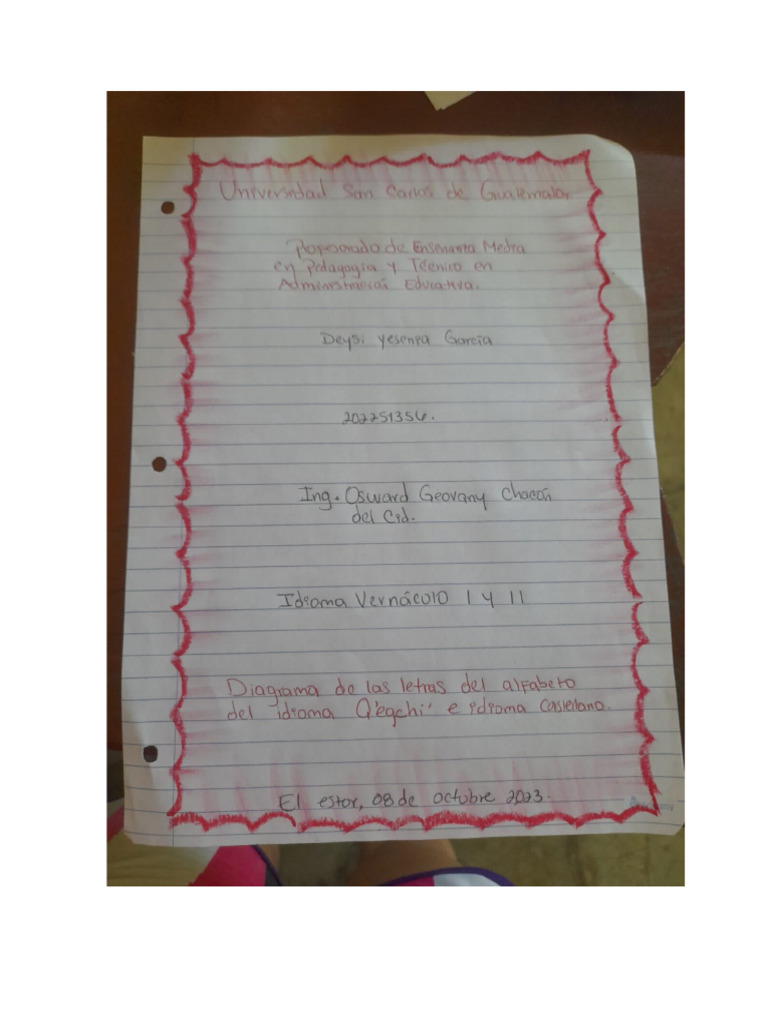 Universidad San Carlos de Guatemala,
Profesorado de Enseñanza Media
en Pedagogía y Técnico en
Administración Educativa.
Deysi yesenia García
202251356.
Ing. Osward Geovany Chacón
del Cid.
Idioma Vernáculo 1 y 11
Diagrama de las letras del alfabeto
del idioma Q'eqchi' e idioma Castellano.
El estor, 08 de octubre 2023.